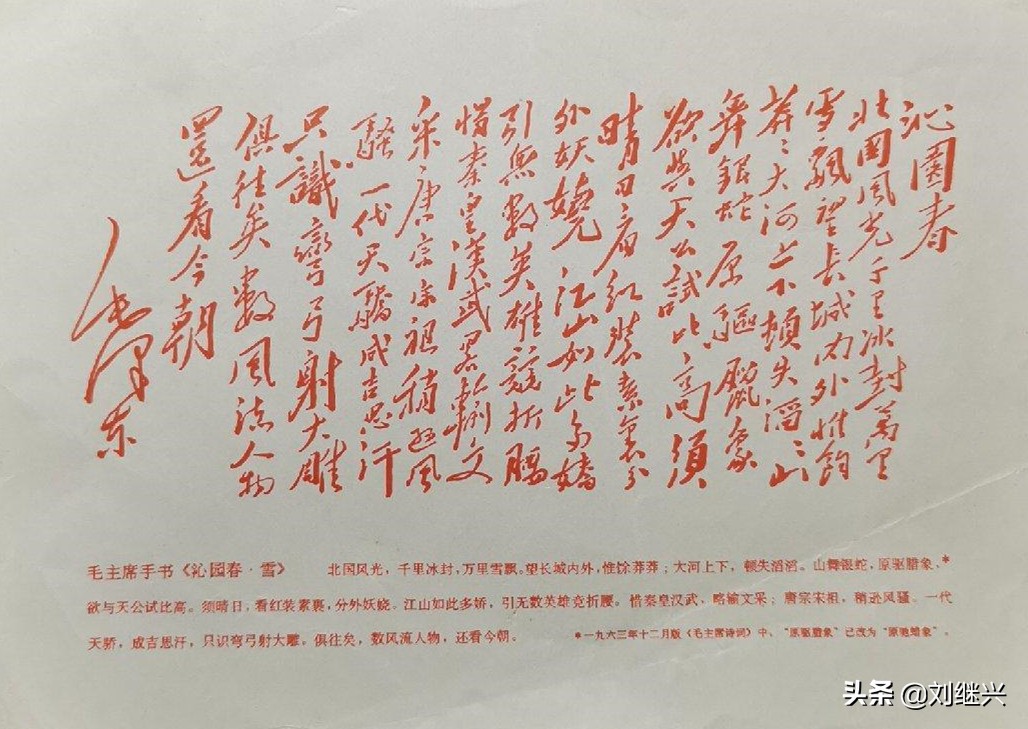 沁園春
北国風光千里冰封萬里
雪飄望長城内外惟餘
莽〻大河上下頓失滔〻山
舞銀蛇原驅臘象
欲與天公試比高須
晴日看红裝素裹分
外妖嬈江山如此多嬌
引無數英雄競折腰
惜秦皇漢武畧輸文
采唐宗宋祖稍遜風
騷一代天驕成吉思汗
只識彎弓射大雕
俱往矣數風流人物
還看今朝
毛澤東
毛主席手书《沁园春·雪》 北国风光，千里冰封，万里雪飘。望长城内外，惟馀莽莽；大河上下，顿失滔滔。山舞银蛇，原驱腊象，*
欲与天公试比高。须晴日，看红装素裹，分外妖娆。江山如此多娇，引无数英雄竞折腰。惜秦皇汉武，略输文采；唐宗宋祖，稍逊风骚。一代
天骄，成吉思汗，只识弯弓射大雕。俱往矣，数风流人物，还看今朝。 *一九六三年十二月版《毛主席诗词》中，“原驱腊象”已改为“原驰蜡象”。
头条 @刘继兴